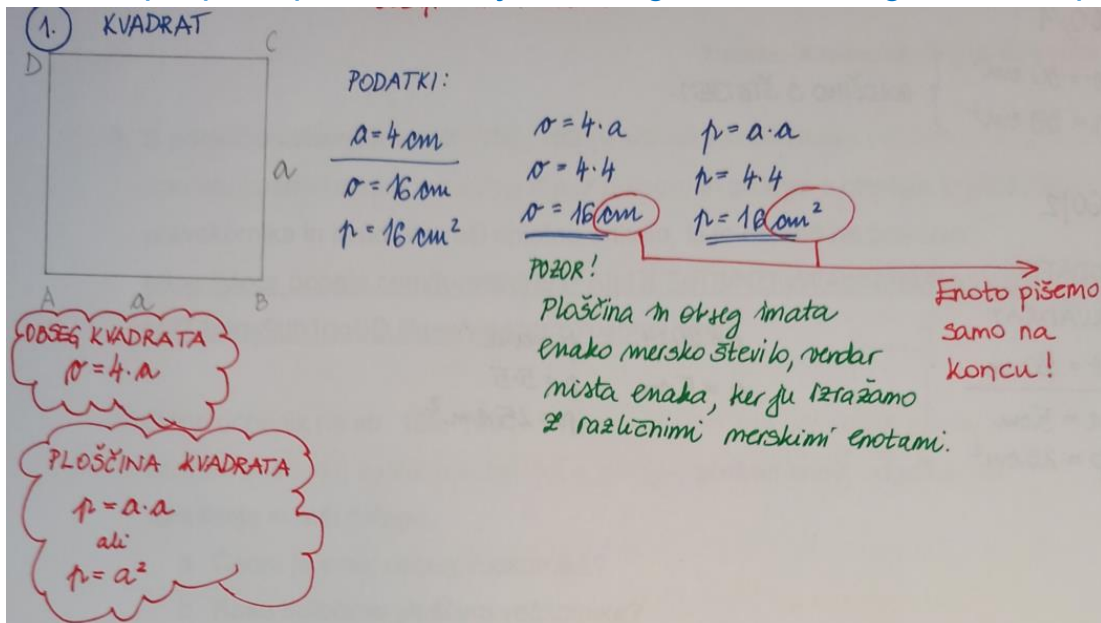 1. KVADRAT
D
C
a
A
a
B
PODATKI:
a = 4 cm
o = 16 cm
p = 16 cm²
o = 4 · a
o = 4 · 4
o = 16 cm
p = a · a
p = 4 · 4
p = 16 cm²
POZOR!
Ploščina in obseg imata
enako mersko število, vendar
nista enaka, ker ju izražamo
z različnimi merskimi enotami.
Enoto pišemo
samo na
koncu!
OBSEG KVADRATA
o = 4 · a
PLOŠČINA KVADRATA
p = a · a
ali
p = a²